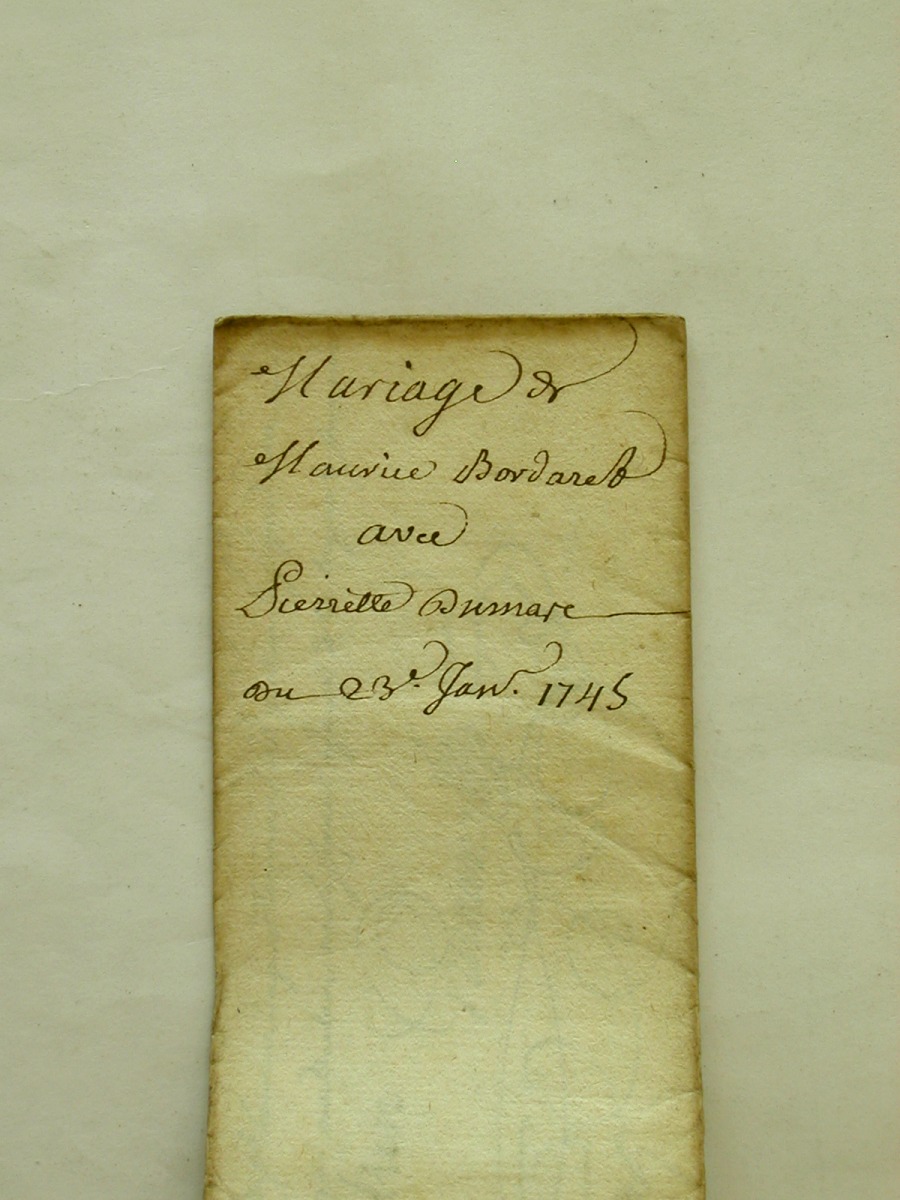 Mariage de
Maurice Bordaret
avec
Pierrette Dumare
du 23e. Janv. 1745